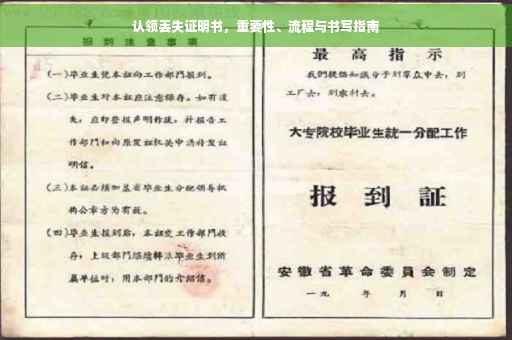 认领丢失证明书，重要性、流程与书写指南
报到注意事项
(一)毕业生凭本证向工作部门报到。
(二)毕业生对本证应注意保存。如有遗
失，应即登报声明作废，并报告工
作部门和向原发证机关申请补发证
明信。
(三)本证必须加盖省毕业生分配领导机
构公章方为有效。
(四)毕业生报到后，本证交工作部门收
存；上级部门继续转派毕业生到所
属单位时，用本部门的介绍信。
最高指示
我们提倡知识分子到群众中去，到
工厂去，到农村去。
大专院校毕业生統一分配工作
报到証
安徽省革命委員会制定
一九 年 月 日